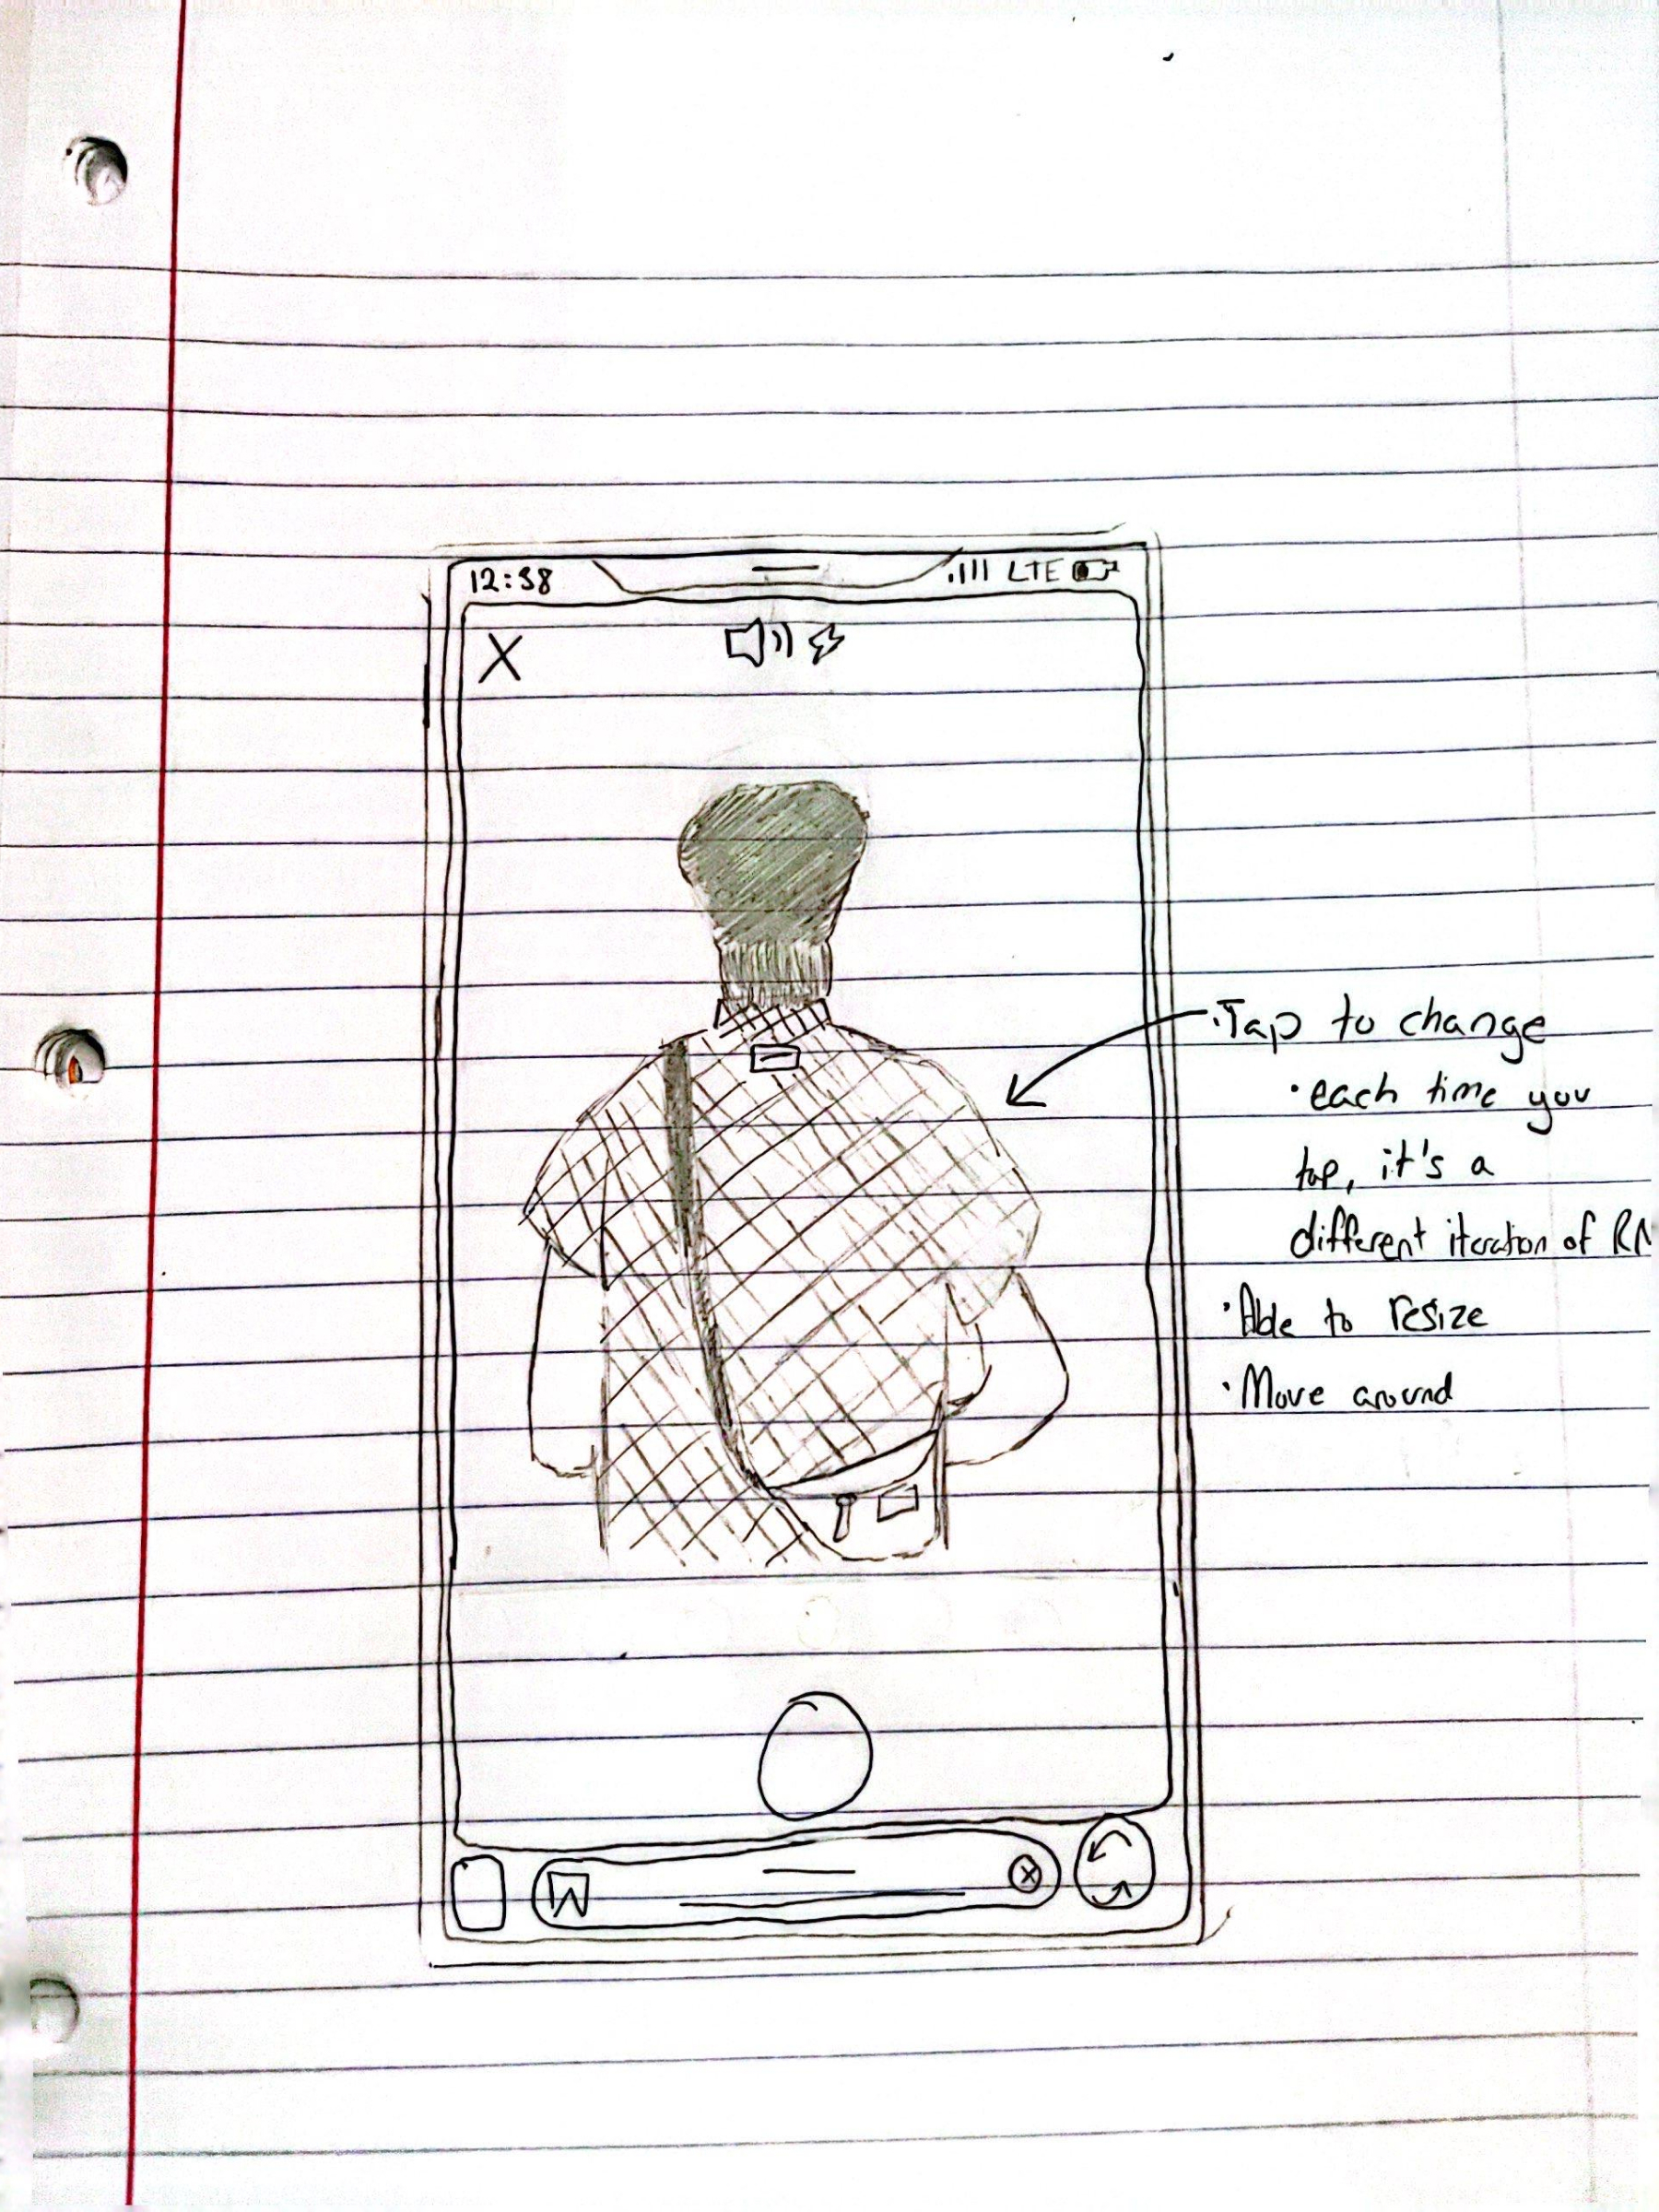 12:38
LTE
X
·Tap to change
·each time you
tap, it's a
different iteration of RN
·Able to resize
·Move around